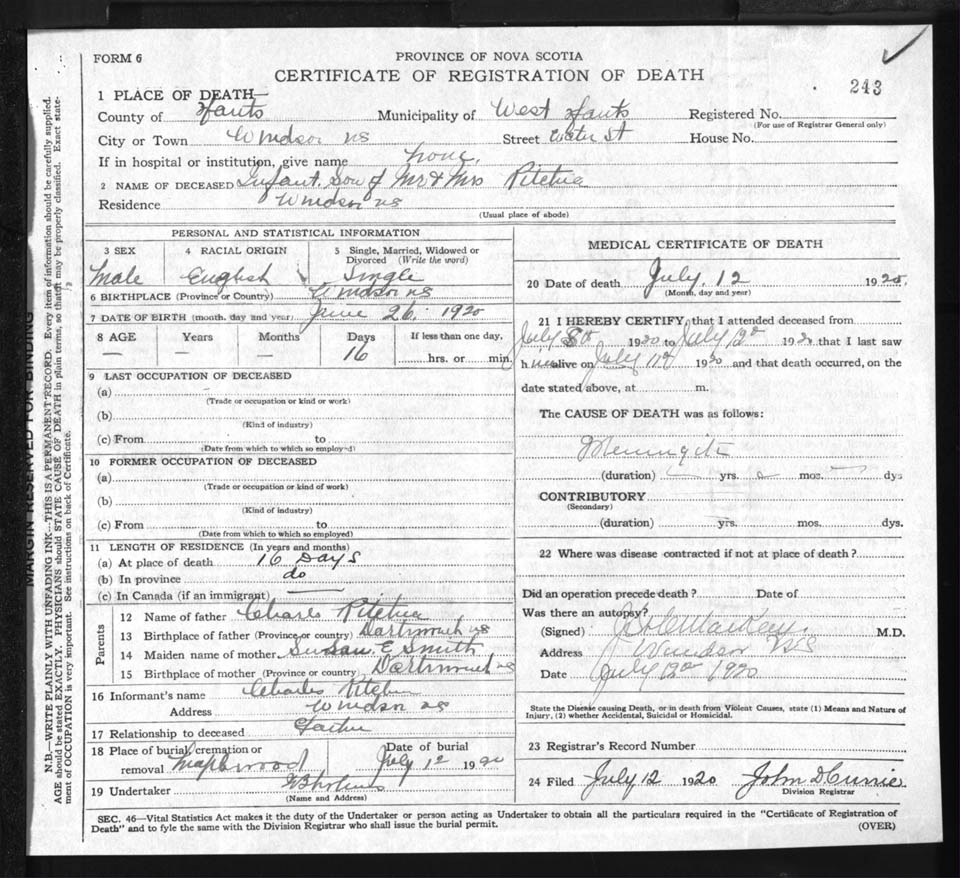 FORM 6
PROVINCE OF NOVA SCOTIA
CERTIFICATE OF REGISTRATION OF DEATH
243
1 PLACE OF DEATH—
County of Hants Municipality of West Hants Registered No.
(For use of Registrar General only)
City or Town Windsor NS Street Water St House No.
If in hospital or institution, give name none.
2 NAME OF DECEASED Infant Son of Mr & Mrs Ritchie
Residence Windsor NS
(Usual place of abode)
PERSONAL AND STATISTICAL INFORMATION
3 SEX 4 RACIAL ORIGIN 5 Single, Married, Widowed or Divorced (Write the word)
Male English Single
6 BIRTHPLACE (Province or Country) Windsor NS
7 DATE OF BIRTH (month, day and year) June 26. 1920
8 AGE Years Months Days If less than one day,
— — — 16 hrs. or min.
9 LAST OCCUPATION OF DECEASED
(a)
(Trade or occupation or kind or work)
(b)
(Kind of industry)
(c) From to
(Date from which to which so employed)
10 FORMER OCCUPATION OF DECEASED
(a)
(Trade or occupation or kind of work)
(b)
(Kind of industry)
(c) From to
(Date from which to which so employed)
11 LENGTH OF RESIDENCE (In years and months)
(a) At place of death 16 Days
(b) In province do
(c) In Canada (if an immigrant)
Parents
12 Name of father Charles Ritchie
13 Birthplace of father (Province or country) Dartmouth NS
14 Maiden name of mother Susan E Smith
15 Birthplace of mother (Province or country) Dartmouth NS
16 Informant's name Charles Ritchie
Address Windsor NS
17 Relationship to deceased Father
18 Place of burial, cremation or removal Maplewood Date of burial July 12 1920
19 Undertaker
(Name and Address)
MEDICAL CERTIFICATE OF DEATH
20 Date of death July. 12 1920.
(Month, day and year)
21 I HEREBY CERTIFY, that I attended deceased from
July 8th 1920 to July 12th 1920 that I last saw
h im alive on July 11th 1920 and that death occurred, on the
date stated above, at m.
The CAUSE OF DEATH was as follows:
Meningitis
(duration) yrs. mos. dys
CONTRIBUTORY
(Secondary)
(duration) yrs. mos. dys.
22 Where was disease contracted if not at place of death?
Did an operation precede death? Date of
Was there an autopsy?
(Signed) M.D.
Address Windsor NS
Date July 12th 1920
State the Disease causing Death, or in death from Violent Causes, state (1) Means and Nature of
Injury, (2) whether Accidental, Suicidal or Homicidal.
23 Registrar's Record Number
24 Filed July 12 1920 John D Currie
Division Registrar
SEC. 46—Vital Statistics Act makes it the duty of the Undertaker or person acting as Undertaker to obtain all the particulars required in the "Certificate of Registration of
Death" and to fyle the same with the Division Registrar who shall issue the burial permit.
(OVER)
MARGIN RESERVED FOR BINDING
N.B.—WRITE PLAINLY WITH UNFADING INK—THIS IS A PERMANENT RECORD. Every item of information should be carefully supplied.
AGE should be stated EXACTLY. PHYSICIANS should STATE CAUSE OF DEATH in plain terms, so that it may be properly classified. Exact state-
ment of OCCUPATION is very important. See instructions on back of Certificate.